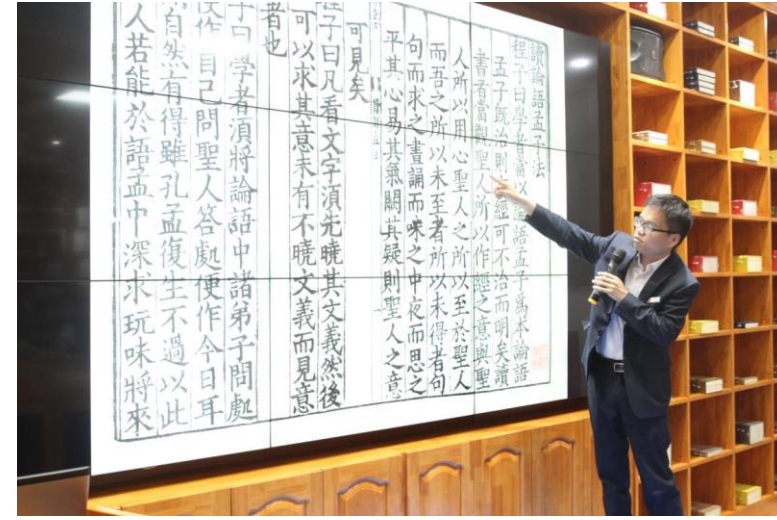 讀論語孟子法
程子曰學者當以論語孟子爲本論語
孟子既治則經可不治而明矣讀
書者當觀聖人所以作經之意與聖
人所以用心聖人之所以至於聖人
而吾之所以未至者所以未得者句
句而求之晝誦而味之中夜而思之
平其心易其氣闕其疑則聖人之意
可見矣
程子曰凡看文字湏先曉其文義然後
可以求其意未有不曉文義而見意
者也
子曰學者湏將論語中諸弟子問處
便作自己問聖人答處便作今日耳
自然有得雖孔孟復生不過以此
人若能於語孟中深求玩味將來